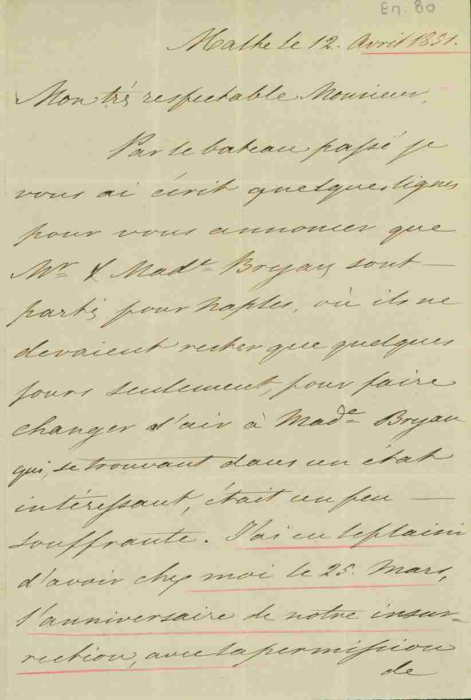 En. 80
Malthe le 12. Avril 1851.
Mon trés respectable Monsieur,
Par le bateau passé je
vous ai écrit quelques lignes
pour vous annoncer que
Mr & Made Bryan sont
partis pour Naples, où ils ne
devaient rester que quelques
jours seulement, pour faire
changer d'air à Made Bryan
qui, se trouvant dans un état
intéressant, était un peu
souffrante. J'ai eu le plaisir
d'avoir chez moi le 25. Mars,
l'anniversaire de notre insur-
rection, avec la permission
de